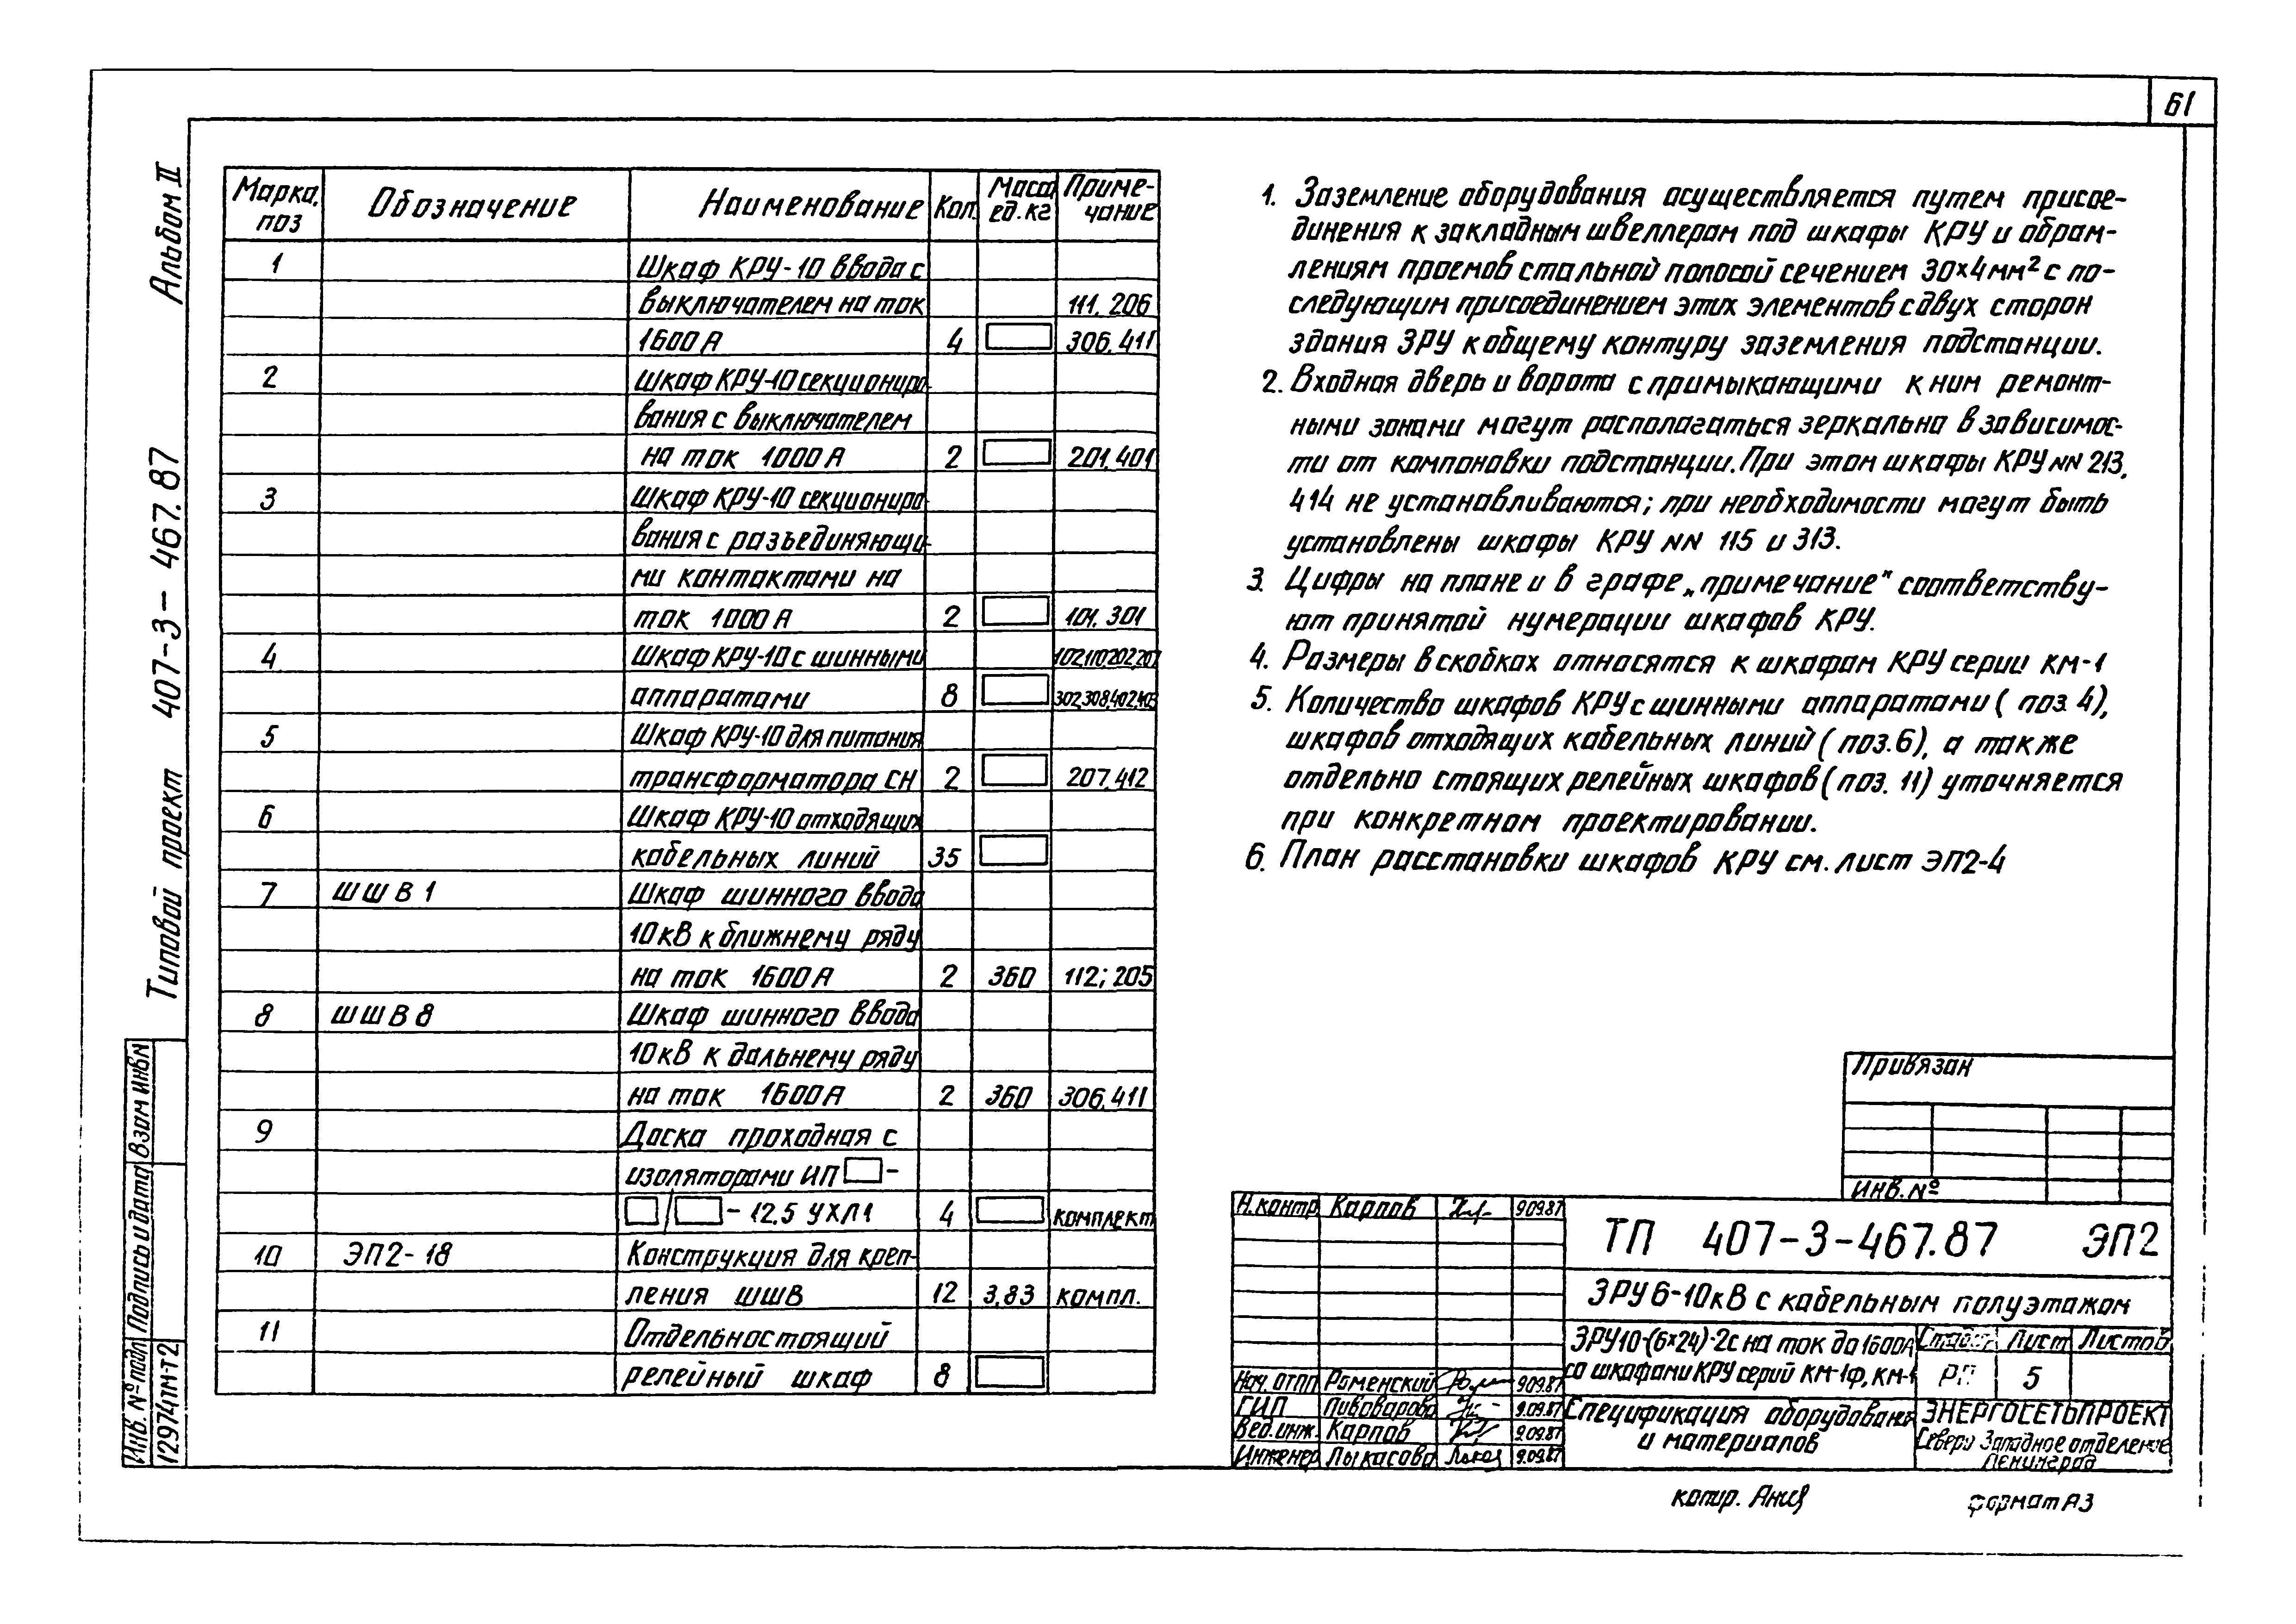 61
Альбом II
Типовой проект 407-3-467.87
Взам инв N
Подпись и дата
Инв. № подл
12974тм-т2
Марка, поз Обозначение Наименование Кол. Масса ед. кг Приме-чание
1 Шкаф КРУ-10 ввода с
выключателем на ток 111, 206
1600 А 4 306, 411
2 Шкаф КРУ-10 секциониро-
вания с выключателем
на ток 1000 А 2 201, 401
3 Шкаф КРУ-10 секциониро-
вания с разъединяющи-
ми контактами на
ток 1000 А 2 101, 301
4 Шкаф КРУ-10 с шинными 102,110,202,207
аппаратами 8 302,308,402,403
5 Шкаф КРУ-10 для питания
трансформатора СН 2 207, 412
6 Шкаф КРУ-10 отходящих
кабельных линий 35
7 ШШВ1 Шкаф шинного ввода
10кВ к ближнему ряду
на ток 1600 А 2 360 112; 205
8 ШШВ8 Шкаф шинного ввода
10кВ к дальнему ряду
на ток 1600 А 2 360 306, 411
9 Доска проходная с
изоляторами ИП -
/ - 12.5 УХЛ1 4 комплект
10 ЭП2-18 Конструкция для креп-
ления ШШВ 12 3,83 компл.
11 Отдельностоящий
релейный шкаф 8
1. Заземление оборудования осуществляется путем присое-
динения к закладным швеллерам под шкафы КРУ и обрам-
лениям проемов стальной полосой сечением 30×4мм² с по-
следующим присоединением этих элементов с двух сторон
здания ЗРУ к общему контуру заземления подстанции.
2. Входная дверь и ворота с примыкающими к ним ремонт-
ными зонами могут располагаться зеркально в зависимос-
ти от компоновки подстанции. При этом шкафы КРУ NN 213,
414 не устанавливаются; при необходимости могут быть
установлены шкафы КРУ NN 115 и 313.
3. Цифры на плане и в графе „примечание" соответству-
ют принятой нумерации шкафов КРУ.
4. Размеры в скобках относятся к шкафам КРУ серии КМ-1
5. Количество шкафов КРУ с шинными аппаратами (поз. 4),
шкафов отходящих кабельных линий (поз. 6), а также
отдельно стоящих релейных шкафов (поз. 11) уточняется
при конкретном проектировании.
6. План расстановки шкафов КРУ см. лист ЭП2-4
Привязан
Инв. №
Н.контр Карпов 9.09.87
ТП 407-3-467.87 ЭП2
ЗРУ 6-10кВ с кабельным полуэтажом
ЗРУ10-(6×24)-2с на ток до 1600А
со шкафами КРУ серий КМ-1Ф, КМ-1
Стадия Лист Листов
РП 5
Нач. ОТПП Роменский 9.09.87
ГИП Пивоварова 9.09.87
Вед. инж. Карпов 9.09.87
Инженер Лыкасова 9.09.87
Спецификация оборудования
и материалов
ЭНЕРГОСЕТЬПРОЕКТ
Северо Западное отделение
Ленинград
копир.
формат А3